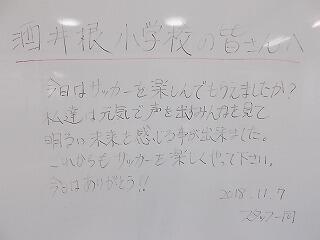 酒井根小学校の皆さんへ
今日はサッカーを楽しんでもらえましたか?
私達は元気で声を出すみんなを見て
明るい未来を感じる事が出来ました。
これからもサッカーを楽しくやって下さい。
今日はありがとう!!
2018.11.7
スタッフ一同